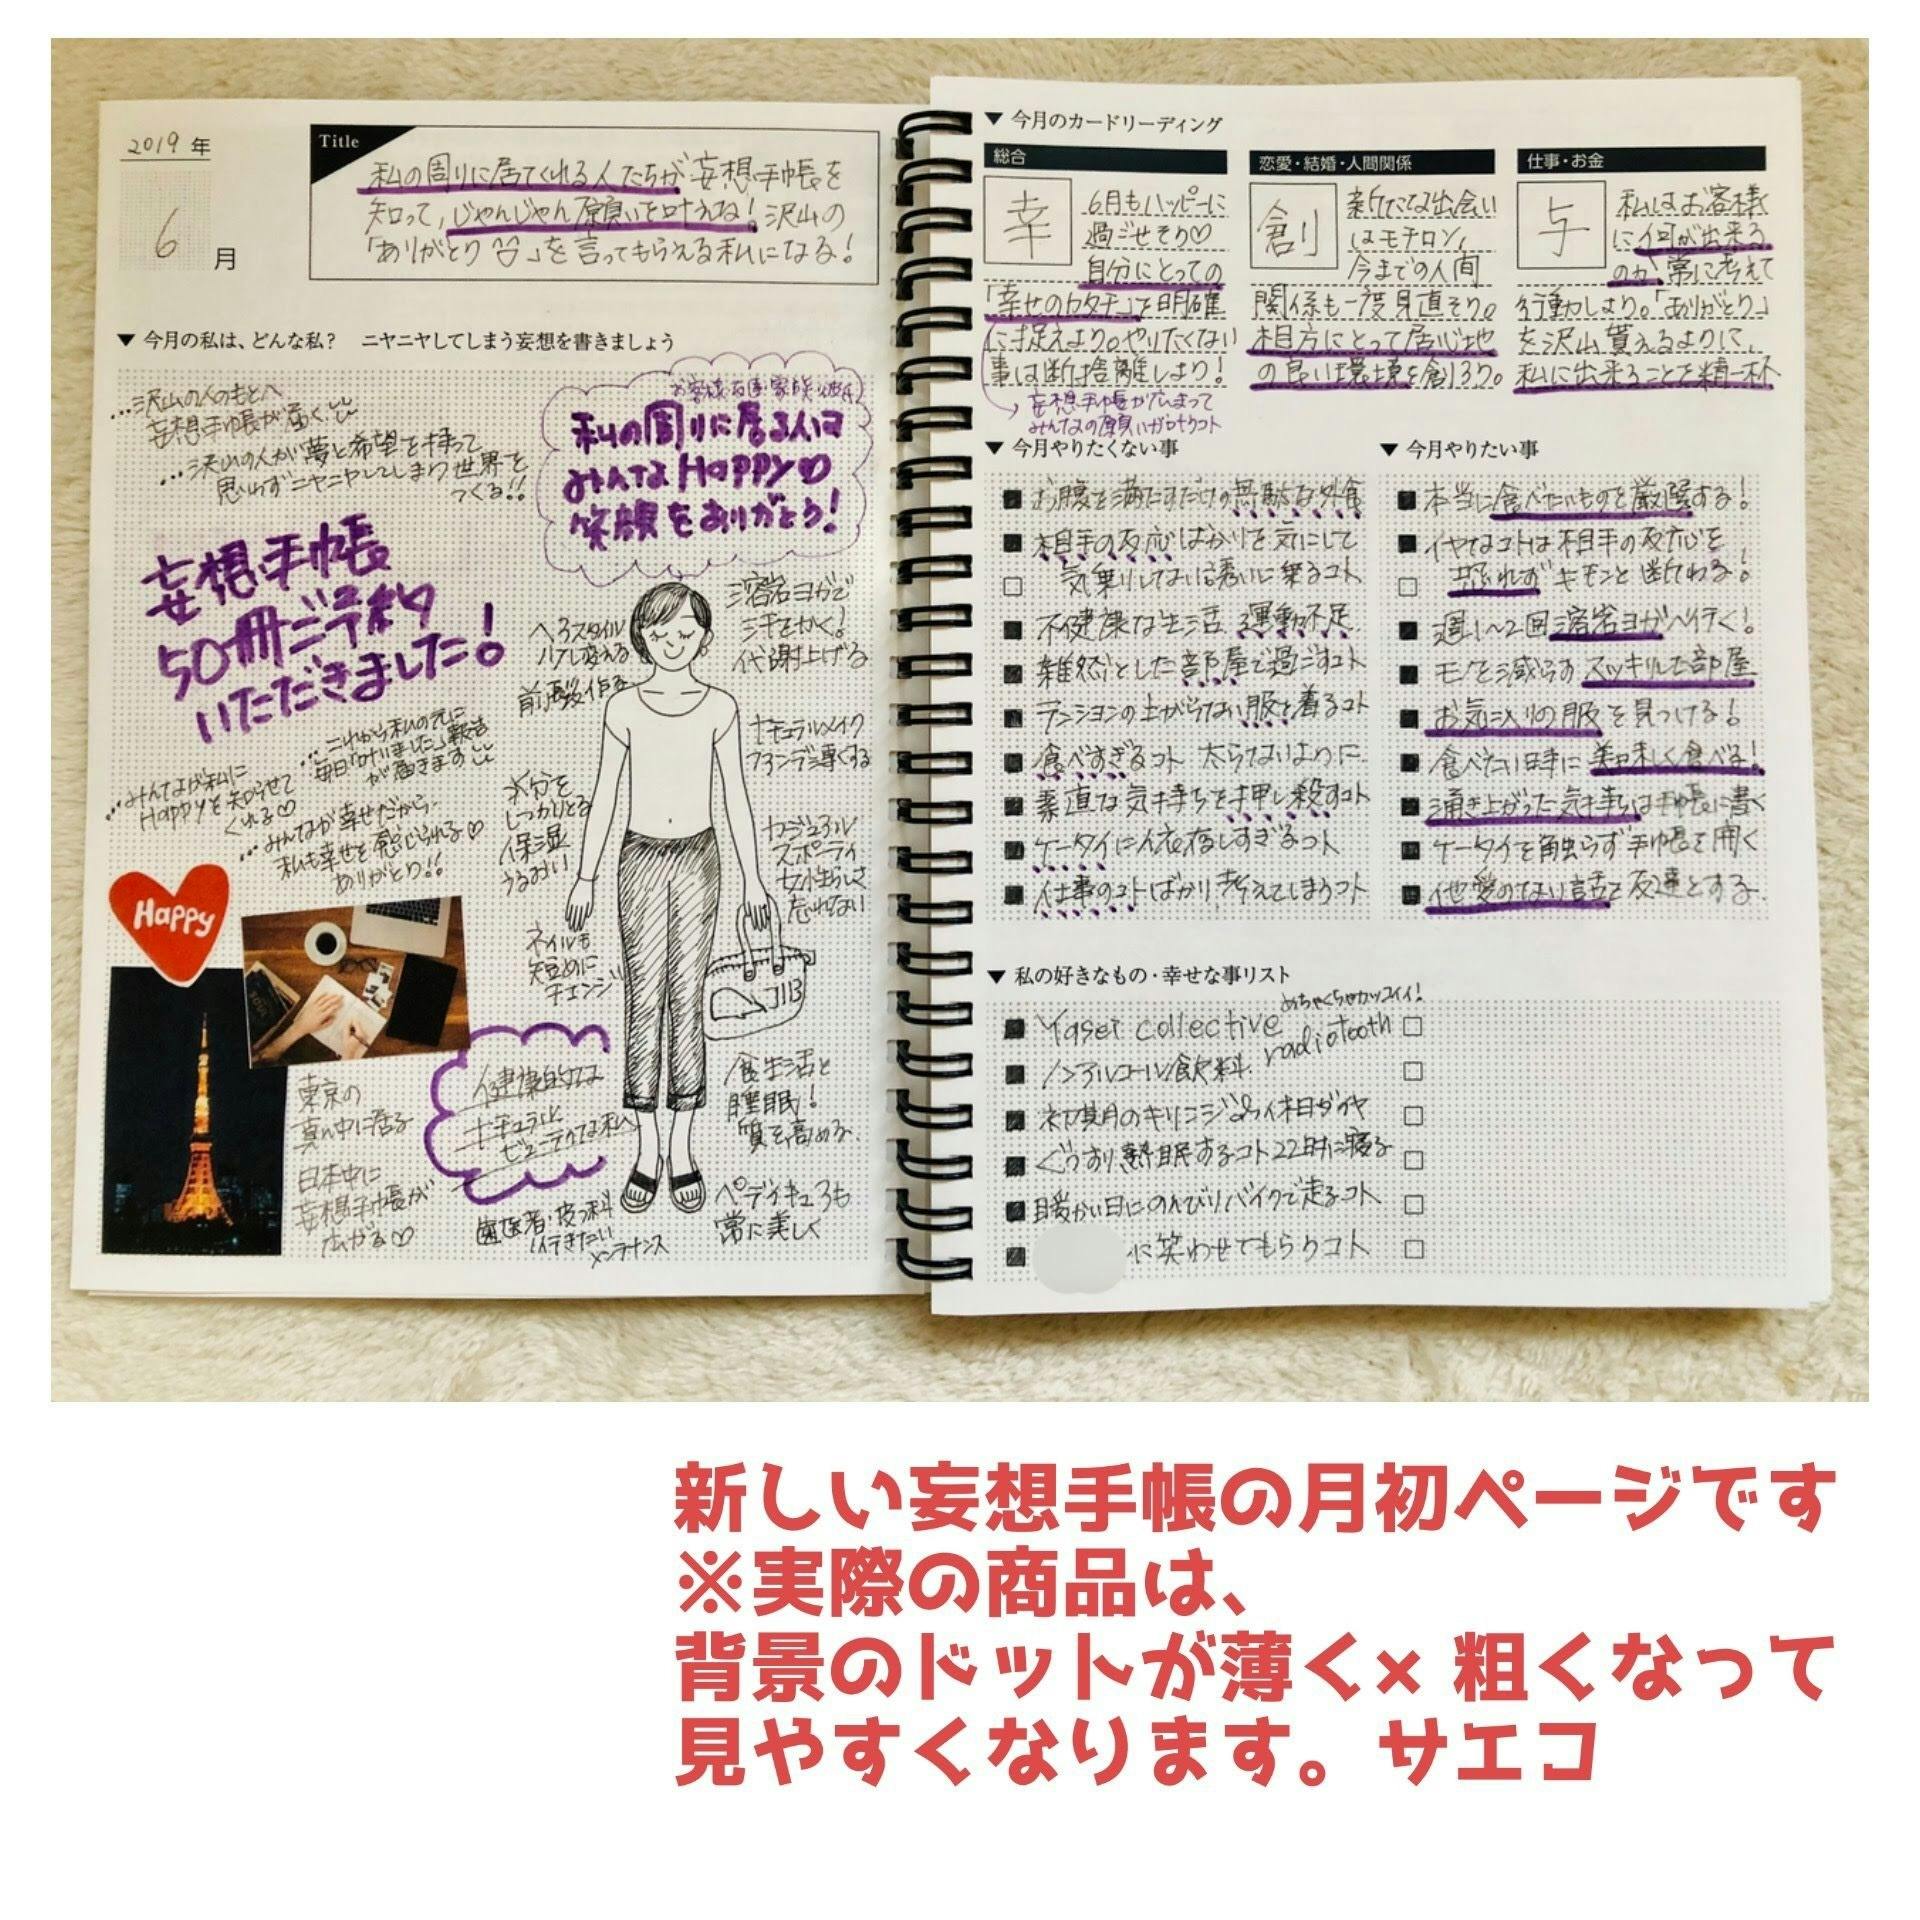 2019年
6月
Title
私の周りに居てくれる人たちが妄想手帳を
知って、じゃんじゃん願いを叶えるね！沢山の
「ありがとう」を言ってもらえる私になる！
▼ 今月の私は、どんな私？　ニヤニヤしてしまう妄想を書きましょう
…沢山の人のもとへ
妄想手帳が届く
…沢山の人が夢と希望を持って
思わずニヤニヤしてしまう世界を
つくる!!
私の周りに居る人は
みんなHappy♡
笑顔をありがとう！
妄想手帳
50冊ご予約
いただきました！
…これから私の元に
毎日「叶いました」報告
が届きます
…みんなが私に
Happyを知らせて
くれる♡
…みんなが幸せだから、
私も幸せを感じられる♡
ありがとう!!
Happy
東京の
真ん中に居る
日本中に
妄想手帳が
広がる♡
ヘアスタイル
前髪作る
溶岩ヨガで
汗をかく！
代謝上げる
ナチュラルメイク
ファンデ薄くする
水分を
しっかりとる
保湿
うるおい
カジュアル
スポーティ
女性らしさ
忘れない
ネイルも
短めに
チェンジ
健康的な
ナチュラル
ビューティクな私
食生活と
睡眠！
質を高める。
歯医者・皮フ科
行きたい
メンテナンス
ペディキュアも
常に美しく
▼ 今月のカードリーディング
総合
幸
6月もハッピーに
過ごせそう♡
自分にとっての
「幸せのカタチ」を明確
に捉えよう。やりたくない
事は断捨離しよう！
妄想手帳が広まって
みんなの願いが叶うコト
恋愛・結婚・人間関係
創
新たな出会い
はモチロン、
今までの人間
関係も一度見直そう。
相方にとって居心地
の良い環境を創ろう。
仕事・お金
与
私はお客様
に何が出来る
のか、常に考えて
行動しよう。「ありがとう」
を沢山貰えるように、
私に出来ることを精一杯
▼ 今月やりたくない事
お腹を満たすだけの無駄な外食
相手の反応ばかりを気にして
気乗りしてない誘いに乗るコト
不健康な生活、運動不足。
雑然とした部屋で過ごすコト
テンションの上がらない服を着るコト
食べすぎるコト　太らないように
素直な気持ちを押し殺すコト
ケータイに依存しすぎるコト
仕事のコトばかり考えてしまうコト
▼ 今月やりたい事
本当に食べたいものを厳選する！
イヤなコトは相手の反応を
恐れずキチンと断わる！
週1～2回溶岩ヨガへ行く！
モノを減らす スッキリした部屋
お気に入りの服を見つける！
食べたい時に美味しく食べる！
湧き上がった気持ちは手帳に書く
ケータイを触らず手帳を開く
他愛のない話を友達とする
▼ 私の好きなもの・幸せな事リスト
めちゃくちゃカッコイイ！
Yasei collective radiotooth
ノンアルコール飲料
初期のキリンジ 休日ダイヤ
ぐっすり熟眠するコト 22時に寝る
暖かい日にのんびりバイクで走るコト
に笑わせてもらうコト
新しい妄想手帳の月初ページです
※実際の商品は、
背景のドットが薄く× 粗くなって
見やすくなります。サエコ